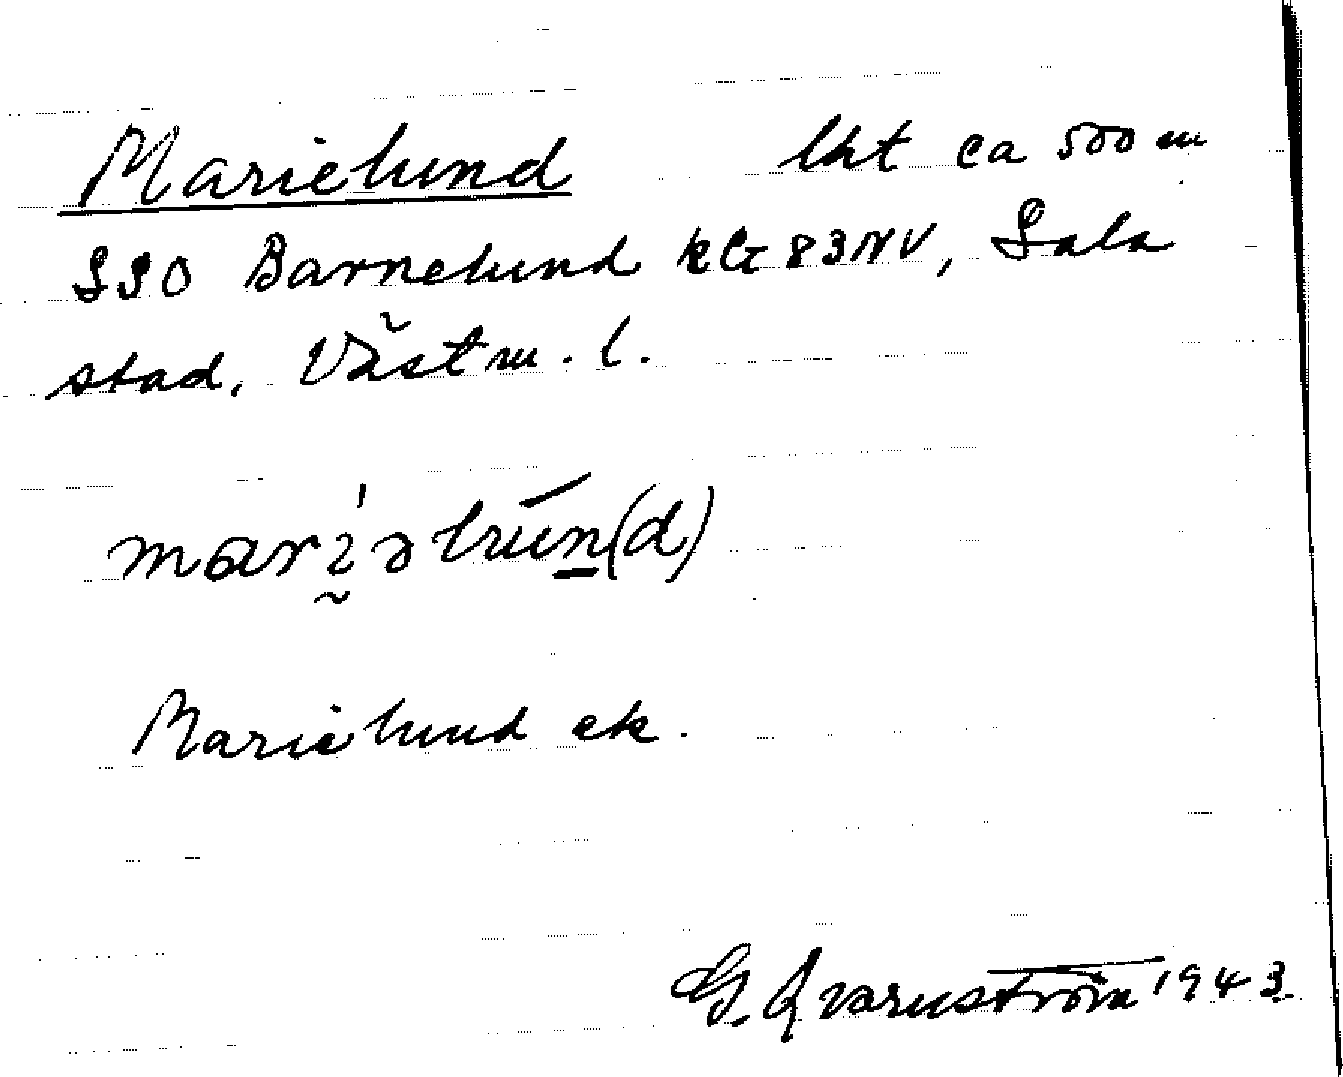 Marielund lht ca 500 m
SSO Barnelund kbl 83 NV, Sala
stad, Västm. l.
Marielund ek.
G. Qvarnström 1943